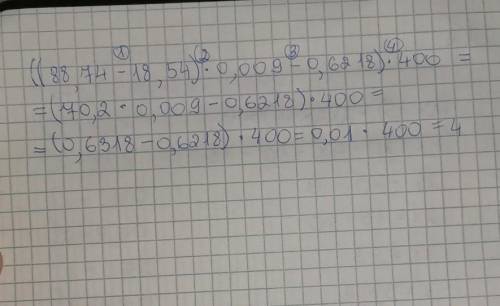 ① ② ③ ④
((88,74 - 18,54) · 0,009 - 0,6218) · 400 =
= (70,2 · 0,009 - 0,6218) · 400 =
= (0,6318 - 0,6218) · 400 = 0,01 · 400 = 4